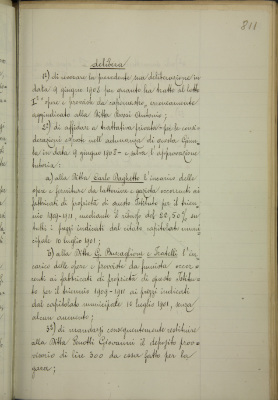 811
delibera
1°) di revocare la precedente sua deliberazione in
data 9 giugno 1908 per quanto ha tratto al lotto
I° opere e provviste da capomastro, erroneamente
aggiudicato alla Ditta Rossi Antonio;
2°) di affidare a trattativa privata per le consi-
derazioni esposte nell'adunanza di questa Giun-
ta in data 9 giugno 1908 e salva l'approvazione
tutoria:
a) alla Ditta Carlo Baghetto l'incarico delle
opere e forniture da lattoniere e gazista occorrenti ai
fabbricati di proprietà di questo Istituto per il bien-
nio 1909-1911, mediante il ribasso del 20,50% su
tutti i prezzi indicati dal citato capitolato muni-
cipale 10 luglio 1901;
b) alla Ditta G. Buscaglioni e Fratelli l'in-
carico delle opere e provviste da fumista occor-
renti ai fabbricati di proprietà di questo Istitu-
to per il biennio 1909-1911 ai prezzi indicati
dal capitolato municipale 10 luglio 1901, senza
alcun aumento;
3°) di mandarsi conseguentemente restituire
alla Ditta Giovanni il deposito prov-
visorio di lire 300 da essa fatto per la
gara;